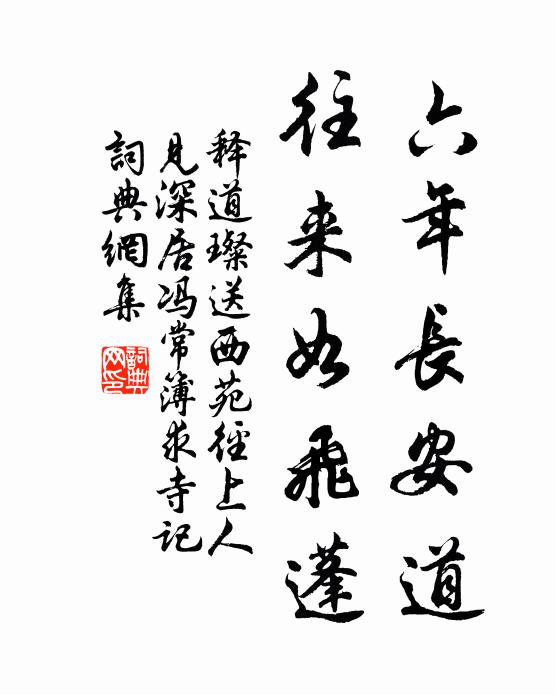 六年長安道
往来如飛蓬
释道璨送西苑徑上人
見深居冯常簿求寺記
詞典網集
詞典网印